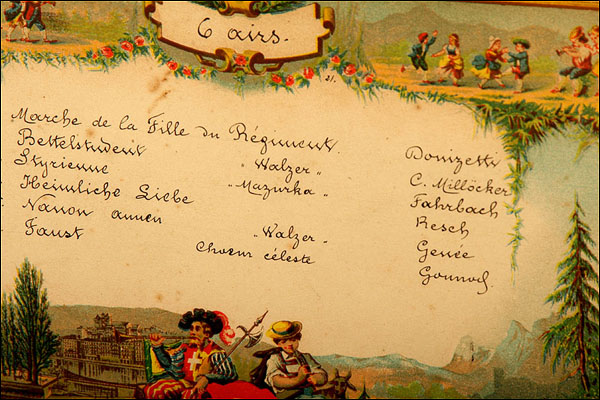 6 airs.
21.
Marche de la Fille du Régiment. Donizetti
Bettelstudent "Walzer" C. Millöcker
Styrienne "Mazurka" Fahrbach
Heimliche Liebe Resch
Nanon "Walzer" Genée
Faust Choeur céleste Gounod.